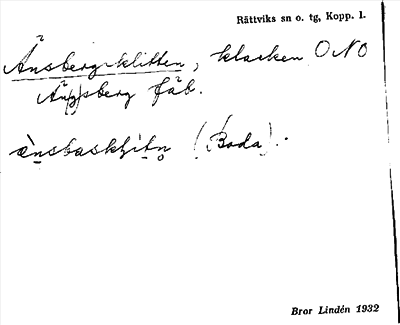 Rättviks sn o. tg, Kopp. l.
Änsbergsklitten, klacken ONO
Än(g)sberg fäb.
(Boda).
Bror Lindén 1932